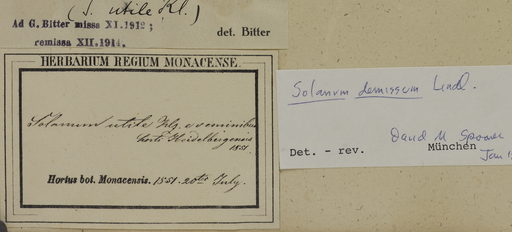 (S. utile Kl.)
Ad G. Bitter missa XI.1912;
remissa XII.1914.
det. Bitter
HERBARIUM REGIUM MONACENSE.
Solanum utile Klg. e seminibus
horti Heidelbergensis
1851.
Hortus bot. Monacensis. 1851. 20te July.
Solanum demissum Lindl.
David M Spooner
Det. - rev. München